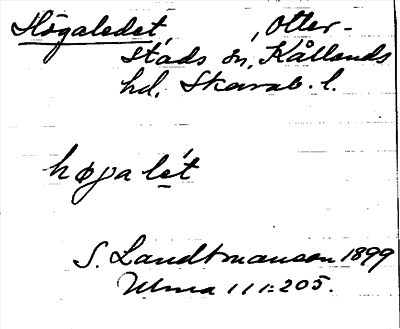 Högaledet, , Otter-
stads sn, Kållands
hd, Skarab. l.
høgalét
S. Landtmanson 1899
Ulma 111:205.